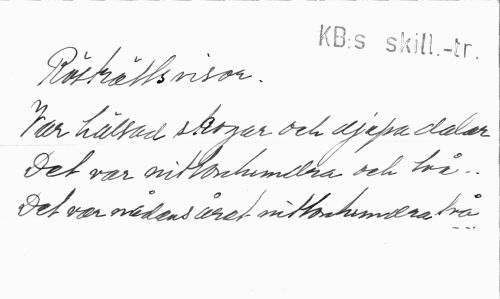 KB:s skill.-tr.
Rösträttsvisor.
Var hälsad skogar och djupa dalar
Det var nittonhundra och två..
Det var nådens året nittonhundra två